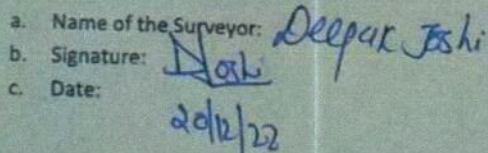 a. Name of the Surveyor: Deepak Joshi
b. Signature: DJoshi
c. Date:
20/12/22